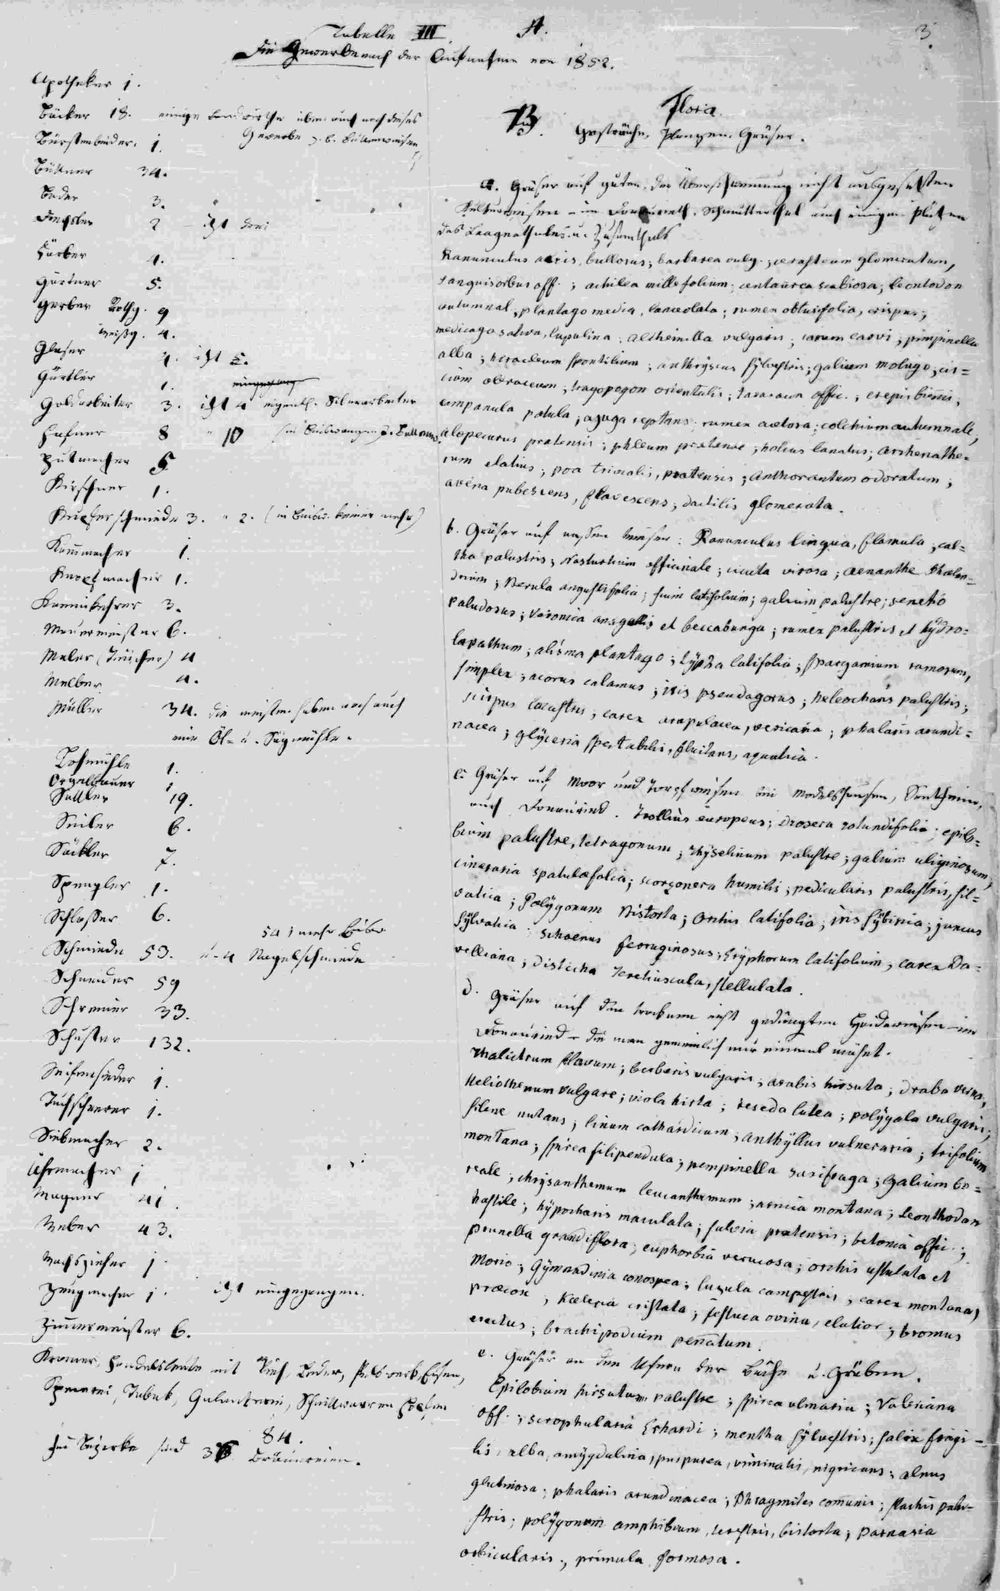 3.
Tabelle III. A.
Die Gewerbe nach der Aufnahme von 1852.
Apotheker 1.
Bäcker 18. einige Landwirthe üben auch noch dieses
Gewerbe z. B.
Bürstenbinder 1.
Büttner 34.
Bader 3.
Drechsler 2 – itzt drei
Färber 4.
Gärtner 5.
Gerber Rothg. 9
Weißg. 4.
Glaser 4. itzt 5.
Gürtler 1. eingegangen
Goldarbeiter 3. itzt 4 eigentl. Silberarbeiter
Hafner 8 " 10
Hutmacher 5
Kirschner 1.
Kupferschmiede 3. " 2. (in keiner mehr)
Kammacher 1.
Knopfmacher 1.
Kaminkehrer 3.
Maurermeister 6.
Maler (Tüncher) 4
Melber 4.
Müller 34. die meisten haben noch auch
eine Öl- u. Sägmühle.
Lohmühle 1.
Orgelbauer 1
Sattler 19.
Seiler 6.
Säckler 7.
Spengler 1.
Schlosser 6.
Schmiede 53. u. 4 Nagelschmiede
Schneider 59
Schreiner 33.
Schuster 132.
Seifensieder 1.
Tuchscherer 1.
Siebmacher 2.
Uhrmacher 1
Wagner 41.
Weber 43.
Wachszieher 1
Zeugmacher 1. itzt eingegangen.
Zimmermeister 6.
Kramer, Handelsleute mit Tuch, Leder, Eisen,
Spezerei, Tabak, Galanterie, Schnittwaaren
84.
sind 36 Bräuereien.
B. Flora.
Gesträuche, Planzen, Gräser.
a. Gräser auf guten, der Überschwemmung nicht ausgesetzten
Kulturwiesen – im Donauried, Schmutterthal auf einigen Plätzen
des u. Zusamthals
Ranunculus acris, bullosus; barbarea vulg.; cerasteum glomeratum,
sanguisorbus off.; achilea millefolium; centaurea scabiosa; leontodon
autumnal., plantago media, lanceolata; rumex obtusifolia, crispus;
medicago sativa, lupulina; alchemilla vulgaris; carum carvi; pimpinella
alba; heracleum spontilium; anthryscus sylvestris; galium molugo; cir-
cium oleraceum; tragopogon orientalis; taraxacum offic.; crepis biennis;
campanula patula; ajuga reptans; rumex acetosa; colchicum autumnale,
alopecurus pratensis; phleum pratense; holcus lanatus; arrhenathe-
rum elatius; poa trivialis, pratensis; anthoxantum odoratum;
avena pubescens, flavescens; dactilis glomerata.
b. Gräser auf nassen Wiesen: Ranunculus lingua, flamula; cal-
tha palustris; Nasturtium officinale; cicuta virosa; aenanthe Phelan-
drium; Berula angustifolia; sium latifolium; galium palustre; senetio
paludosus; Veronica anagallis et beccabunga; rumex palustris et hydro-
lapathum; alisma plantago; typha latifolia; sparganium ramosum,
simplex; acorus calamus; iris pseudagorus; heleocharis palustris;
scirpus lacustris; carex ampulacea, vesicaria; phalaris arundi-
nacea; glyceria spectabilis, fluitans, aquatica.
c. Gräser auf Moor und Torfwiesen bei Modelshausen, Sontheim,
auch Donauried. Trollius europeus; drosera rotundifolia; epilo-
bium palustre, tetragonum; thyselinum palustre; galium uliginosum,
cineraria spatulefolia; scorzonera humilis; pedicularis palustris, sil-
vatica; Polygonum Bistorta; Orchis latifolia; iris sybiria; juncus
sylvatica; Schoenus ferruginosus; Eryphorum latifolium; carex Da-
velliana, disticha teretiuscula, stellulata.
d. Gräser auf den trockenen nicht gedüngten Haidewiesen – im
Donauried – die man gemeinlich nur einmal mähet.
Thalictrum flavum; berberis vulgaris; arabis hirsuta; draba verna,
Heliothenum vulgare; viola hirta; reseda lutea; polygala vulgaris;
silene nutans; linum cathardicum; anthyllus vulneraria; trifolium
montana; spirea filipendula; pempinella saxifraga; Galium bo-
reale; chrysanthemum leucanthemum; arnica montana; Leonthodon
hastile; hypocharis maculata; salvia pratensis; betonia offic.;
prunella grandiflora; euphorbia verucosa; orchis ustulata et
Morio; Gymnadinia conospea; luzula campestris; carex montana,
præcox; Kœleria cristata; festuca ovina, elatior; bromus
erectus; brachipodium pennatum.
e. Gräser an den Ufern der Bäche u. Gräben.
Epilobium hirsutum, palustre; spirea ulmaria; Valeriana
off.; scrophularia Erhardi; mentha sylvestris; salix fragi-
lis, alba, amygdalina, purpurea, viminalis, nigricans; alnus
glutinosa; phalaris arundinacea; Phragmites comunis; stachis palu-
stris; polygonum amphibium, terestris, bistorta; Parnasia
orbicularis; primula formosa.